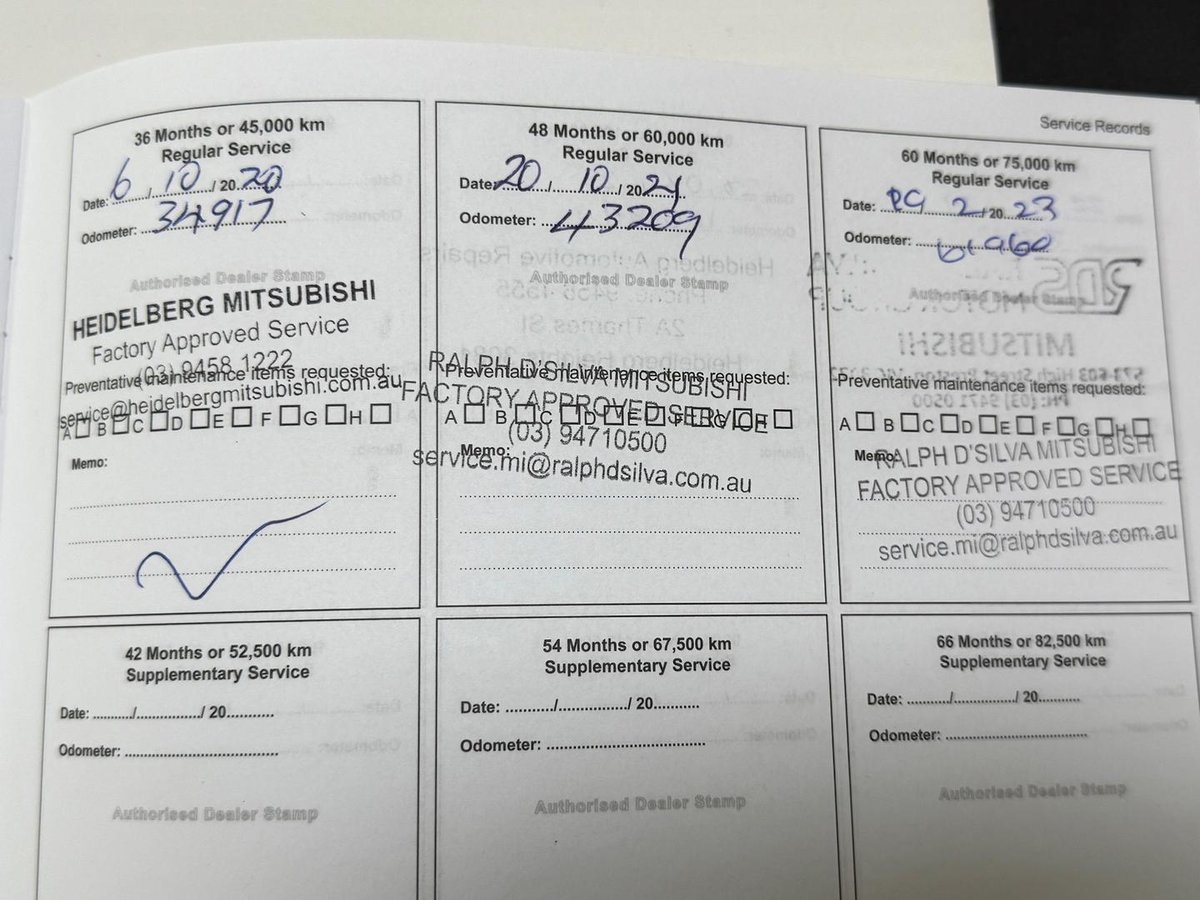 Service Records
36 Months or 45,000 km
Regular Service
Date: 6 / 10 / 20 20
Odometer: 34917
Authorised Dealer Stamp
HEIDELBERG MITSUBISHI
Factory Approved Service
(03) 9458 1222
Preventative maintenance items requested:
service@heidelbergmitsubishi.com.au
A B C D E F G H
Memo:
48 Months or 60,000 km
Regular Service
Date: 20 / 10 / 20 21
Odometer: 43209
Heidelberg Automotive Repairs
Authorised Dealer Stamp
2A Thames St
RALPH D'SILVA MITSUBISHI
Preventative maintenance items requested:
FACTORY APPROVED SERVICE
A B C D E F G H
(03) 94710500
Memo:
service.mi@ralphdsilva.com.au
60 Months or 75,000 km
Regular Service
Date: 2 / 20 23
Odometer:
Authorised Dealer Stamp
MITSUBISHI
Preventative maintenance items requested:
PH: (03) 9471 0500
A B C D E F G H
Memo:
RALPH D'SILVA MITSUBISHI
FACTORY APPROVED SERVICE
(03) 94710500
service.mi@ralphdsilva.com.au
42 Months or 52,500 km
Supplementary Service
Date: ........./.............../ 20..........
Odometer: .................................
Authorised Dealer Stamp
54 Months or 67,500 km
Supplementary Service
Date: ........../.............../ 20..........
Odometer: ..................................
Authorised Dealer Stamp
66 Months or 82,500 km
Supplementary Service
Date: ........./.............../ 20.........
Odometer: ..............................
Authorised Dealer Stamp